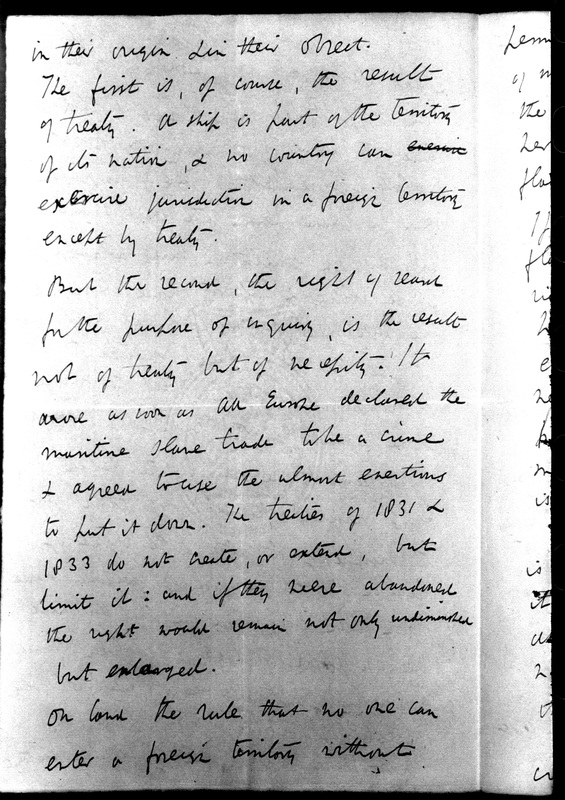 in their origin & in their object.
The first is, of course, the result
of treaty. A ship is part of the territory
of its nation, & no country can
exercise jurisdiction in a foreign territory
except by treaty.
But the second, the right of search
for the purpose of inquiry, is the result
not of treaty but of necessity. It
arose as soon as all Europe declared the
maritime slave trade to be a crime
& agreed to use the utmost exertions
to put it down. The treaties of 1831 &
1833 do not create, or extend, but
limit it: and if they were abandoned
the right would remain not only undiminished
but enlarged.
On land the rule that no one can
enter a foreign territory without